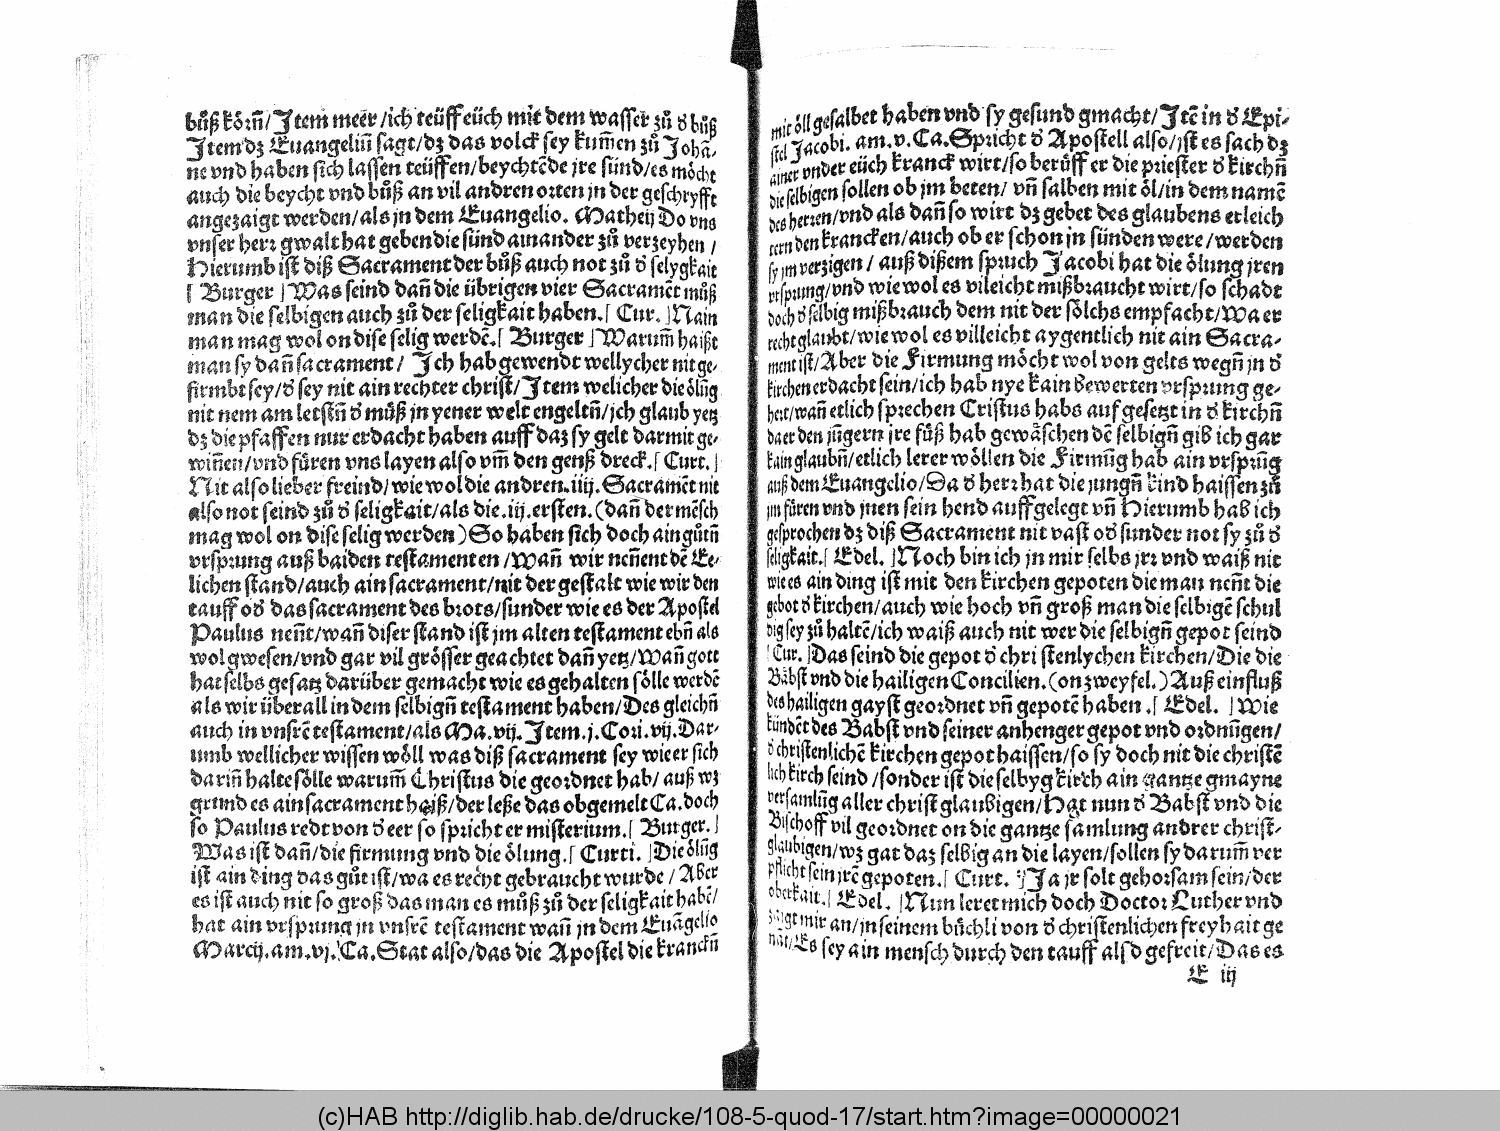 bůß köm̄/Item meer/ich teüff eüch mit dem wasser zů ď bůß
Item dz Euangeliū sagt/dz das volck sey kum̄en zů Johā,
ne vnd haben sich lassen teüffen/beychtēde jre sünd/es möcht
auch die beycht vnd bůß an vil andren orten jn der geschryfft
angezaigt werden/als jn dem Euangelio. Matheij Do vns
vnser herr gwalt hat geben die sünd ainander zů verzeyhen /
Hierumb ist diß Sacrament der bůß auch not zů ď selygkait
[ Burger ] Was seind dan̄ die übrigen vier Sacramēt můß
man die selbigen auch zů der seligkait haben.[ Cur. ]Nain
man mag wol on dise selig werdē.[ Burger ]Warum̄ haißt
man sy dan̄ sacrament / Ich hab gewendt wellycher nit ge-
firmbt sey/ď sey nit ain rechter christ/Item welicher die ölūg
nit nem am letstn̄ ď můß jn yener welt engeltn̄/jch glaub yetz
dz die pfaffen nur erdacht haben auff daz sy gelt darmit ge-
win̄en/vnd fůren vns layen also vm̄ den genß dreck.[ Curt.]
Nit also lieber freind/wie wol die andren.iiij.Sacramēt nit
also not seind zů ď seligkait/als die.iij.ersten.(dan̄ der mēsch
mag wol on dise selig werden)So haben sich doch ain gůtn̄
vrsprung auß baiden testamenten/Wan̄ wir nen̄ent dē Ee-
lichen stand/auch ain sacrament/nit der gestalt wie wir den
tauff oď das sacrament des brots/sunder wie es der Apostel
Paulus nen̄t/wan̄ diser stand ist jm alten testament ebn̄ als
wol gwesen/vnd gar vil grösser geachtet dan̄ yetz/Wan̄ gott
hat selbs gesatz darüber gemacht wie es gehalten sölle werdē
als wir überall in dem selbign̄ testament haben/Des gleichn̄
auch in vnsrē testament/als Ma.vij.Item.j.Cori.vij.Dar-
umb wellicher wissen wöll was diß sacrament sey wie er sich
darin̄ halte sölle warum̄ Christus die geordnet hab/ auß wz
grund es ain sacrament haiß/der leße das obgemelt Ca.doch
so Paulus redt von ď eer so spricht er misterium.[ Burger.]
Was ist dan̄/die firmung vnd die ölung.[ Curti. ]Die ölūg
ist ain ding das gůt ist/wa es recht gebraucht wurde / Aber
es ist auch nit so groß das man es můß zů der seligkait habē/
hat ain vrsprung jn vnsrē testament wan̄ jn dem Euāgelio
Marcij.am.vj.Ca.Stat also/das die Apostel die kranckn̄
mit öll gesalbet haben vnd sy gesund gmacht/Itē in ď Epi-
stel Jacobi. am.v.Ca.Spricht ď Apostell also/jst es sach dz
ainer vnder eüch kranck wirt/so berůff er die priester ď kirchn̄
die selbigen sollen ob jm beten/ vn̄ salben mit öl/in dem namē
des herren/vnd als dan̄ so wirt dz gebet des glaubens erleich
tern den krancken/auch ob er schon jn sünden were/werden
sy jm verzigen / auß dißem spruch Jacobi hat die ölung jren
vrsprung/vnd wie wol es vileicht mißbraucht wirt/so schadt
doch ď selbig mißbrauch dem nit der sölchs empfacht/Wa er
recht glaubt/wie wol es villeicht aygentlich nit ain Sacra-
ment ist/Aber die Firmung möcht wol von gelts wegn̄ jn ď
kirchen erdacht sein/ich hab nye kain bewerten vrsprung ge-
hert/wan̄ etlich sprechen Cristus habs auf gesetzt in ď kirchn̄
da er den jūgern jre fůß hab gewäschen dē selbign̄ gib ich gar
kain glaubn̄/etlich lerer wöllen die Firmūg hab ain vrsprūg
auß dem Euangelio/Da ď herr hat die jungn̄ kind haissen zů
jm fůren vnd jnen sein hend auffgelegt vn̄ Hierumb hab ich
gesprochen dz diß Sacrament nit vast oď sunder not sy zů ď
seligkait.[ Edel. ]Noch bin ich jn mir selbs jrr vnd waiß nit
wie es ain ding ist mit den kirchen gepoten die man nen̄t die
gebot ď kirchen/auch wie hoch vn̄ groß man die selbigē schul
dig sey zů haltē/ich waiß auch nit wer die selbign̄ gepot seind
[Cur. ]Das seind die gepot ď christenlychen kirchen/Die die
Bäbst vnd die hailigen Concilien.(on zweyfel.)Auß einfluß
des hailigen gayst geordnet vn̄ gepotē haben .[ Edel. ]Wie
kündēt des Babst vnd seiner anhenger gepot vnd ordnūgen/
ď christenlichē kirchen gepot haissen/so sy doch nit die christē
lich kirch seind /sonder ist die selbyg kirch ain gantze gmayne
versamlūg aller christ glaubigen/Hat nun ď Babst vnd die
Bischoff vil geordnet on die gantze samlung andrer christ-
glaubigen/wz gat daz selbig an die layen/sollen sy darum̄ ver
pflicht sein jrē gepoten.[ Curt. ]Ja jr solt gehorsam sein/der
oberkait.[ Edel. ]Nun leret mich doch Doctor Luther vnd
zaigt mir an/jn seinem bůchli von ď christenlichen freyhait ge
nāt/Es sey ain mensch durch den tauff also gefreit/Das es
E iij
(c)HAB http://diglib.hab.de/drucke/108-5-quod-17/start.htm?image=00000021